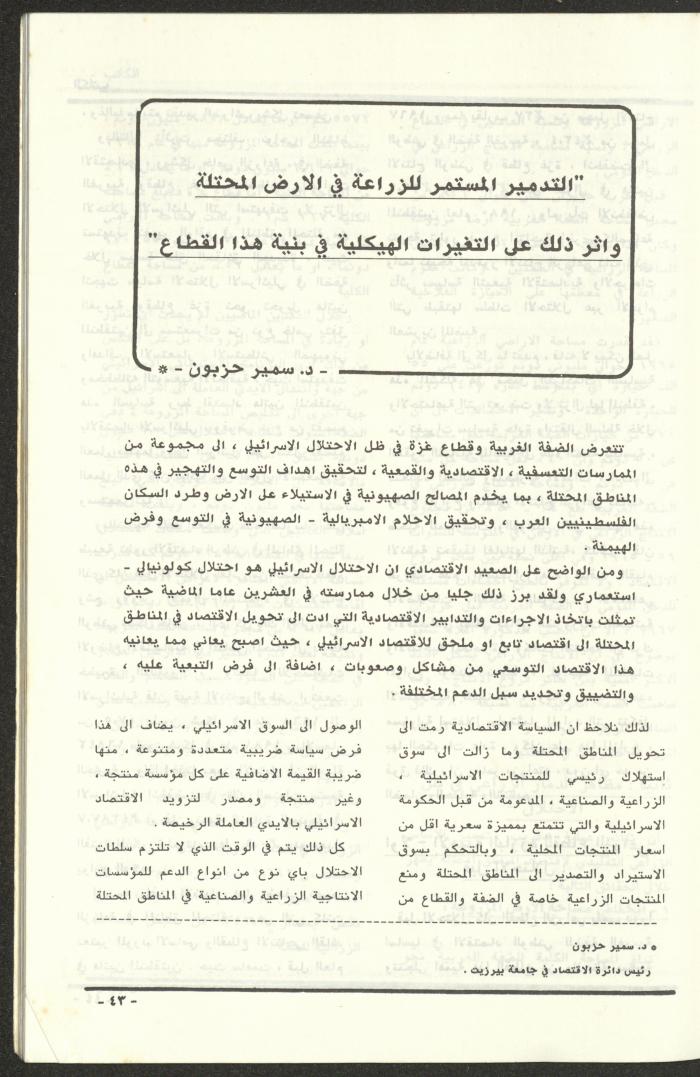 "التدمير المستمر للزراعة في الارض المحتلة
واثر ذلك على التغيرات الهيكلية في بنية هذا القطاع"
- د. سمير حزبون - *
تتعرض الضفة الغربية وقطاع غزة في ظل الاحتلال الاسرائيلي ، الى مجموعة من
الممارسات التعسفية ، الاقتصادية والقمعية ، لتحقيق اهداف التوسع والتهجير في هذه
المناطق المحتلة ، بما يخدم المصالح الصهيونية في الاستيلاء على الارض وطرد السكان
الفلسطينيين العرب ، وتحقيق الاحلام الامبريالية - الصهيونية في التوسع وفرض
الهيمنة .
ومن الواضح على الصعيد الاقتصادي ان الاحتلال الاسرائيلي هو احتلال كولونيالي -
استعماري ولقد برز ذلك جليا من خلال ممارسته في العشرين عاما الماضية حيث
تمثلت باتخاذ الاجراءات والتدابير الاقتصادية التي ادت الى تحويل الاقتصاد في المناطق
المحتلة الى اقتصاد تابع او ملحق للاقتصاد الاسرائيلي ، حيث اصبح يعاني مما يعانيه
هذا الاقتصاد التوسعي من مشاكل وصعوبات ، اضافة الى فرض التبعية عليه ،
والتضييق وتحديد سبل الدعم المختلفة .
لذلك نلاحظ ان السياسة الاقتصادية رمت الى
تحويل المناطق المحتلة وما زالت الى سوق
استهلاك رئيسي للمنتجات الاسرائيلية ،
الزراعية والصناعية ، المدعومة من قبل الحكومة
الاسرائيلية والتي تتمتع بمميزة سعرية اقل من
اسعار المنتجات المحلية ، وبالتحكم بسوق
الاستيراد والتصدير الى المناطق المحتلة ومنع
المنتجات الزراعية خاصة في الضفة والقطاع من
الوصول الى السوق الاسرائيلي ، يضاف الى هذا
فرض سياسة ضريبية متعددة ومتنوعة ، منها
ضريبة القيمة الاضافية على كل مؤسسة منتجة ،
وغير منتجة ومصدر لتزويد الاقتصاد
الاسرائيلي بالايدي العاملة الرخيصة .
كل ذلك يتم في الوقت الذي لا تلتزم سلطات
الاحتلال باي نوع من انواع الدعم للمؤسسات
الانتاجية الزراعية والصناعية في المناطق المحتلة
* د. سمير حزبون
رئيس دائرة الاقتصاد في جامعة بيرزيت .
- ٤٣ -